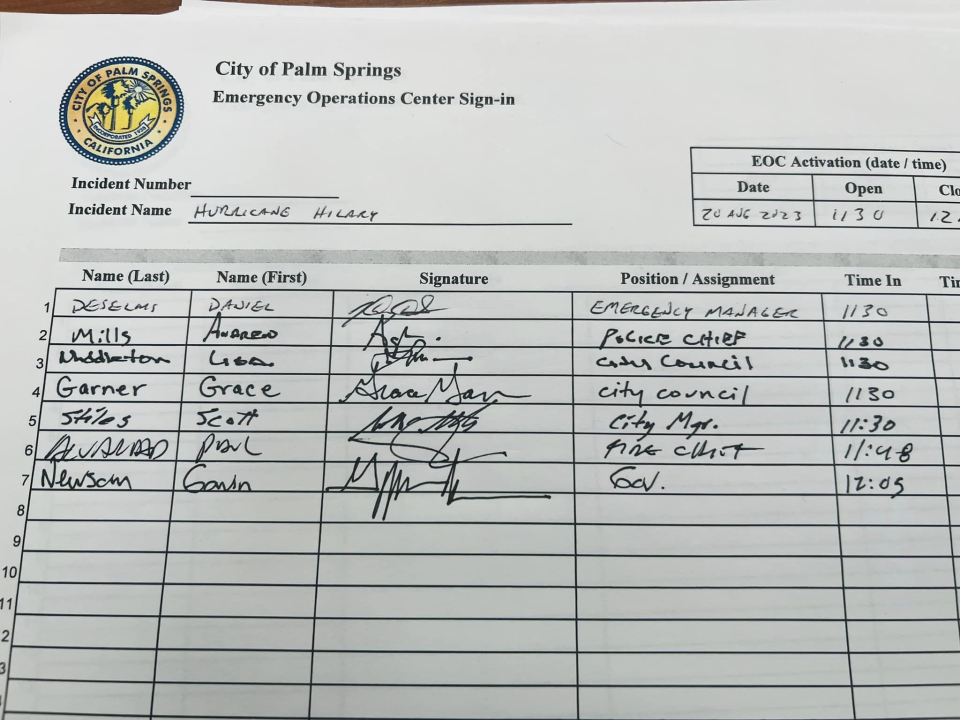 City of Palm Springs
Emergency Operations Center Sign-in
CITY OF PALM SPRINGS
INCORPORATED 1938
CALIFORNIA
Incident Number
Incident Name HURRICANE HILARY
EOC Activation (date / time)
Date Open Clo
20 AUG 2023 1130 12
Name (Last) Name (First) Signature Position / Assignment Time In Tim
1 DESELMS DANIEL EMERGENCY MANAGER 1130
2 Mills ANDREW POLICE CHIEF 1130
3 Middleton Lisa City Council 1130
4 Garner Grace Grace Garner city council 1130
5 Stiles Scott City Mgr. 11:30
6 ALVARADO PAUL FIRE CHIEF 11:48
7 Newsom Gavin Gov. 12:05
8
9
10
11
2
3